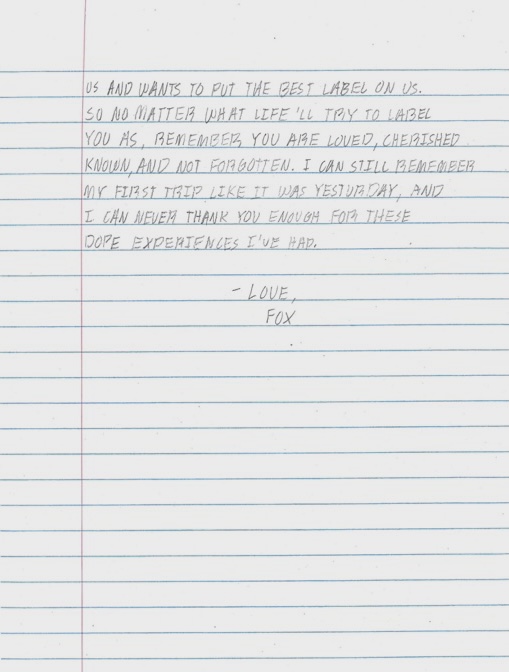 US AND WANTS TO PUT THE BEST LABEL ON US.
SO NO MATTER WHAT LIFE'LL TRY TO LABEL
YOU AS, REMEMBER YOU ARE LOVED, CHERISHED
KNOWN, AND NOT FORGOTTEN. I CAN STILL REMEMBER
MY FIRST TRIP LIKE IT WAS YESTURDAY, AND
I CAN NEVER THANK YOU ENOUGH FOR THESE
DOPE EXPERIENCES I'VE HAD.
- LOVE,
FOX